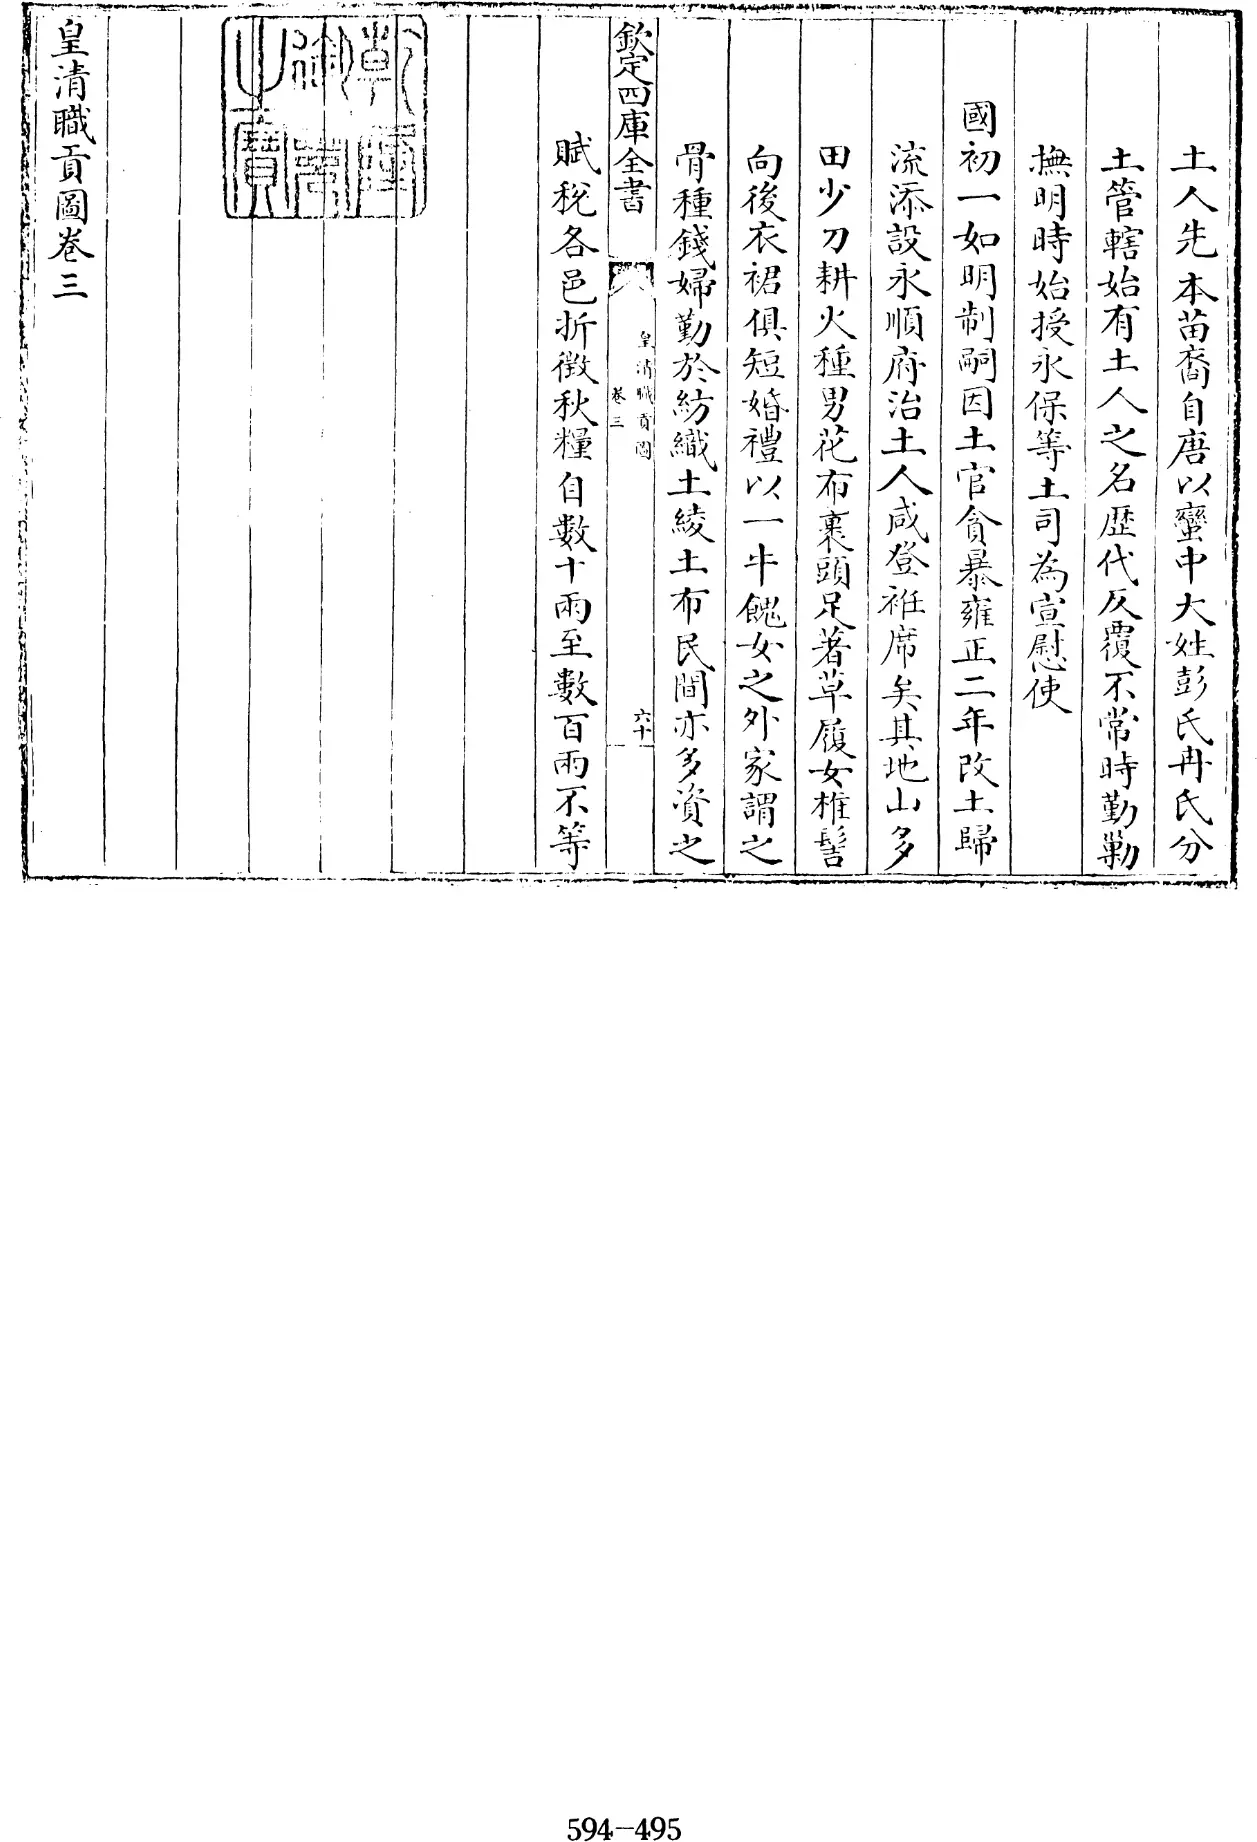 土人先本苗裔自唐以蠻中大姓彭氏冉氏分
土管轄始有土人之名歴代反覆不常時勤勦
撫明時始授永保等土司為宣慰使
國初一如明制嗣因土官貪暴雍正二年改土歸
流添設永順府治土人咸登袵席矣其地山多
田少刀耕火種男花布裹頭足著草履女椎髻
向後衣裙俱短婚禮以一牛餽女之外家謂之
骨種錢婦勤於紡織土綾土布民間亦多資之
欽定四庫全書
皇清職貢圖
卷三
六十
賦税各邑折徵秋糧自數十兩至數百兩不等
乾隆
御覽
之寶
皇清職貢圖卷三
594-495